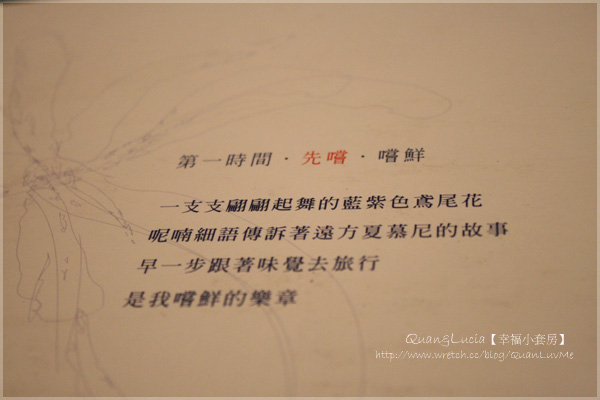 第一時間·先嚐·嚐鮮
一支支翩翩起舞的藍紫色鳶尾花
呢喃細語傳訴著遠方夏慕尼的故事
早一步跟著味覺去旅行
是我嚐鮮的樂章
QuangLucia【幸福小套房】
http://www.wretch.cc/blog/QuanLuvMe